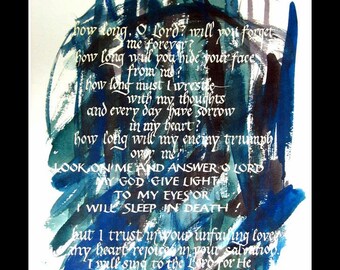 how long, O Lord? will you forget
me forever?
how long will you hide your face
from me?
how long must I wrestle
with my thoughts
and every day have sorrow
in my heart?
how long will my enemy triumph
over me?
LOOK ON ME AND ANSWER O LORD
MY GOD GIVE LIGHT
TO MY EYES OR
WILL SLEEP IN DEATH!
but I trust in your unfailing love
my heart rejoices in your salvation
I will sing to the Lord for He